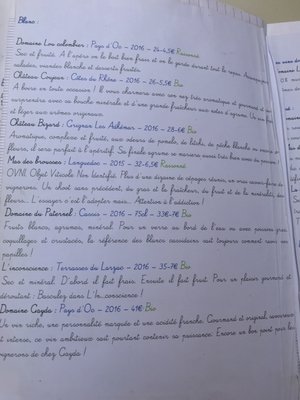 Blanc :
Domaine Lou colombier : Pays d'Oc – 2016 – 24-4,5€ Raisonné
Sec et fruité. À l'apéro on le boit bien frais et on le garde durant tout le repas.
salades, viandes blanche et desserts fruités.
Château Coujean : Côtes du Rhône – 2016 – 26-5,5€ Bio
À boire en toute occasion ! Il vous charmera avec son nez très aromatique et gourmand et vous
surprendra avec sa bouche minérale et d'une grande fraîcheur aux notes d'agrume. Un vin
et léger aux arômes originaux.
Château Bégard : Grignan Les Adhémar – 2016 – 28-6€ Bio
Aromatique, complexe et fruité, aux odeurs de pomelo, de litchi, de pêche blanche ou
fleurs, il sera parfait à l'apéritif. Sa finale agrume se mariera aussi très bien avec du poisson !
Mas des brousses : Languedoc – 2015 – 32-6,5€ Raisonné
OVNI. Objet Viticole Non Identifié. Plus d'une dizaine de cépages réunis, un vrai savoir-faire de
vignerons. Un choc sans précédent, du gras et la fraîcheur, du fruit et de la minéralité, des
fleurs... L'essayer c'est l'adopter mais... Attention à l'addiction !
Domaine du Paternel : Cassis – 2016 – 75cl – 33€-7€ Bio
Fruits blancs, agrumes, minéral. Pour un verre au bord de l'eau ou avec poissons gras,
coquillages et crustacés, la référence des blancs cassidens sait toujours comment ravir vos
papilles !
L'inconscience : Terrasses du Larzac – 2016 – 35-7€ Bio
Sec et minéral. D'abord il fait frais. Ensuite il fait fruit. Pour un plaisir gourmand et
déroutant : Basculez dans L'In...conscience !
Domaine Gayda : Pays d'Oc – 2016 – 41€ Bio
Un vin riche, une personnalité marquée et une acidité franche. Gourmand et original, savoureux
et intense, ce vin ambitieux sait pourtant contenir sa puissance. Encore un bon point pour les
vignerons de chez Gayda !